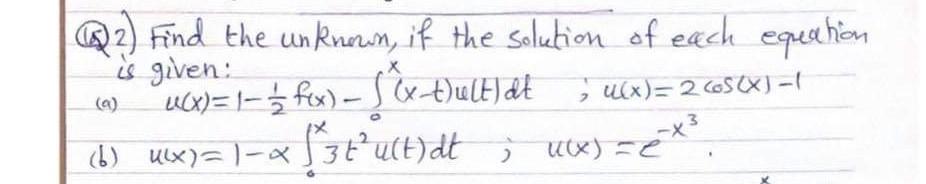 Q2) Find the unknown, if the solution of each equation
is given:
(a) u(x)=1-½ f(x) - ∫₀ˣ (x-t)u(t) dt ; u(x)= 2 cos(x) -1
(b) u(x)= 1-α ∫₀ˣ 3t² u(t) dt ; u(x) = e^(-x³).